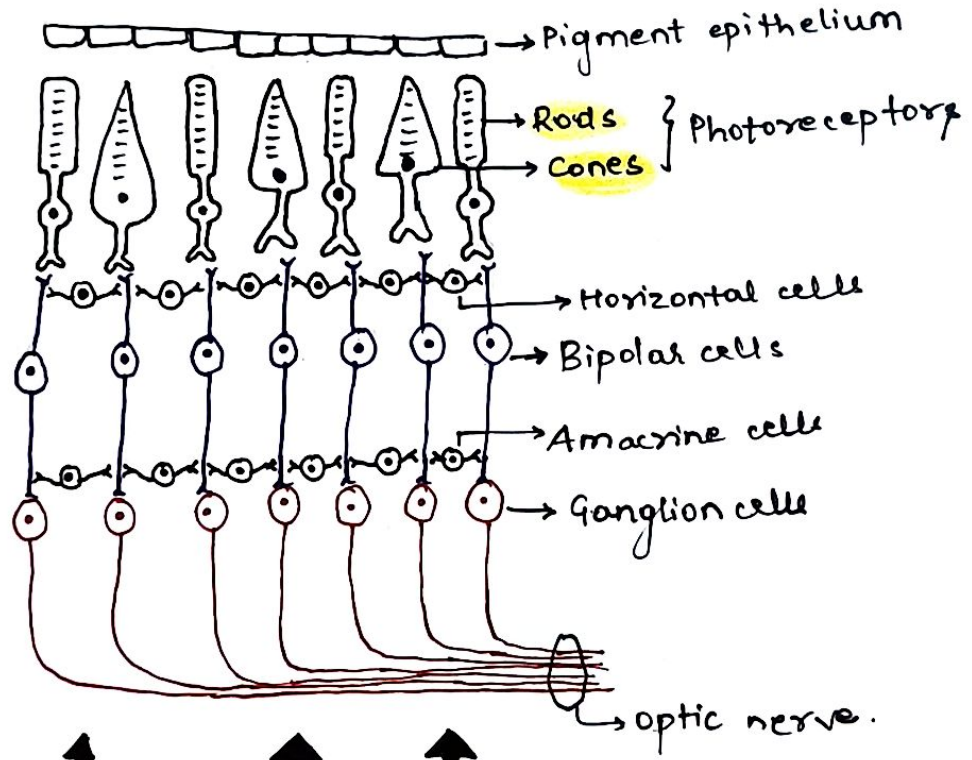 Pigment epithelium
Rods
Photoreceptors
Cones
Horizontal cells
Bipolar cells
Amacrine cells
Ganglion cells
optic nerve.